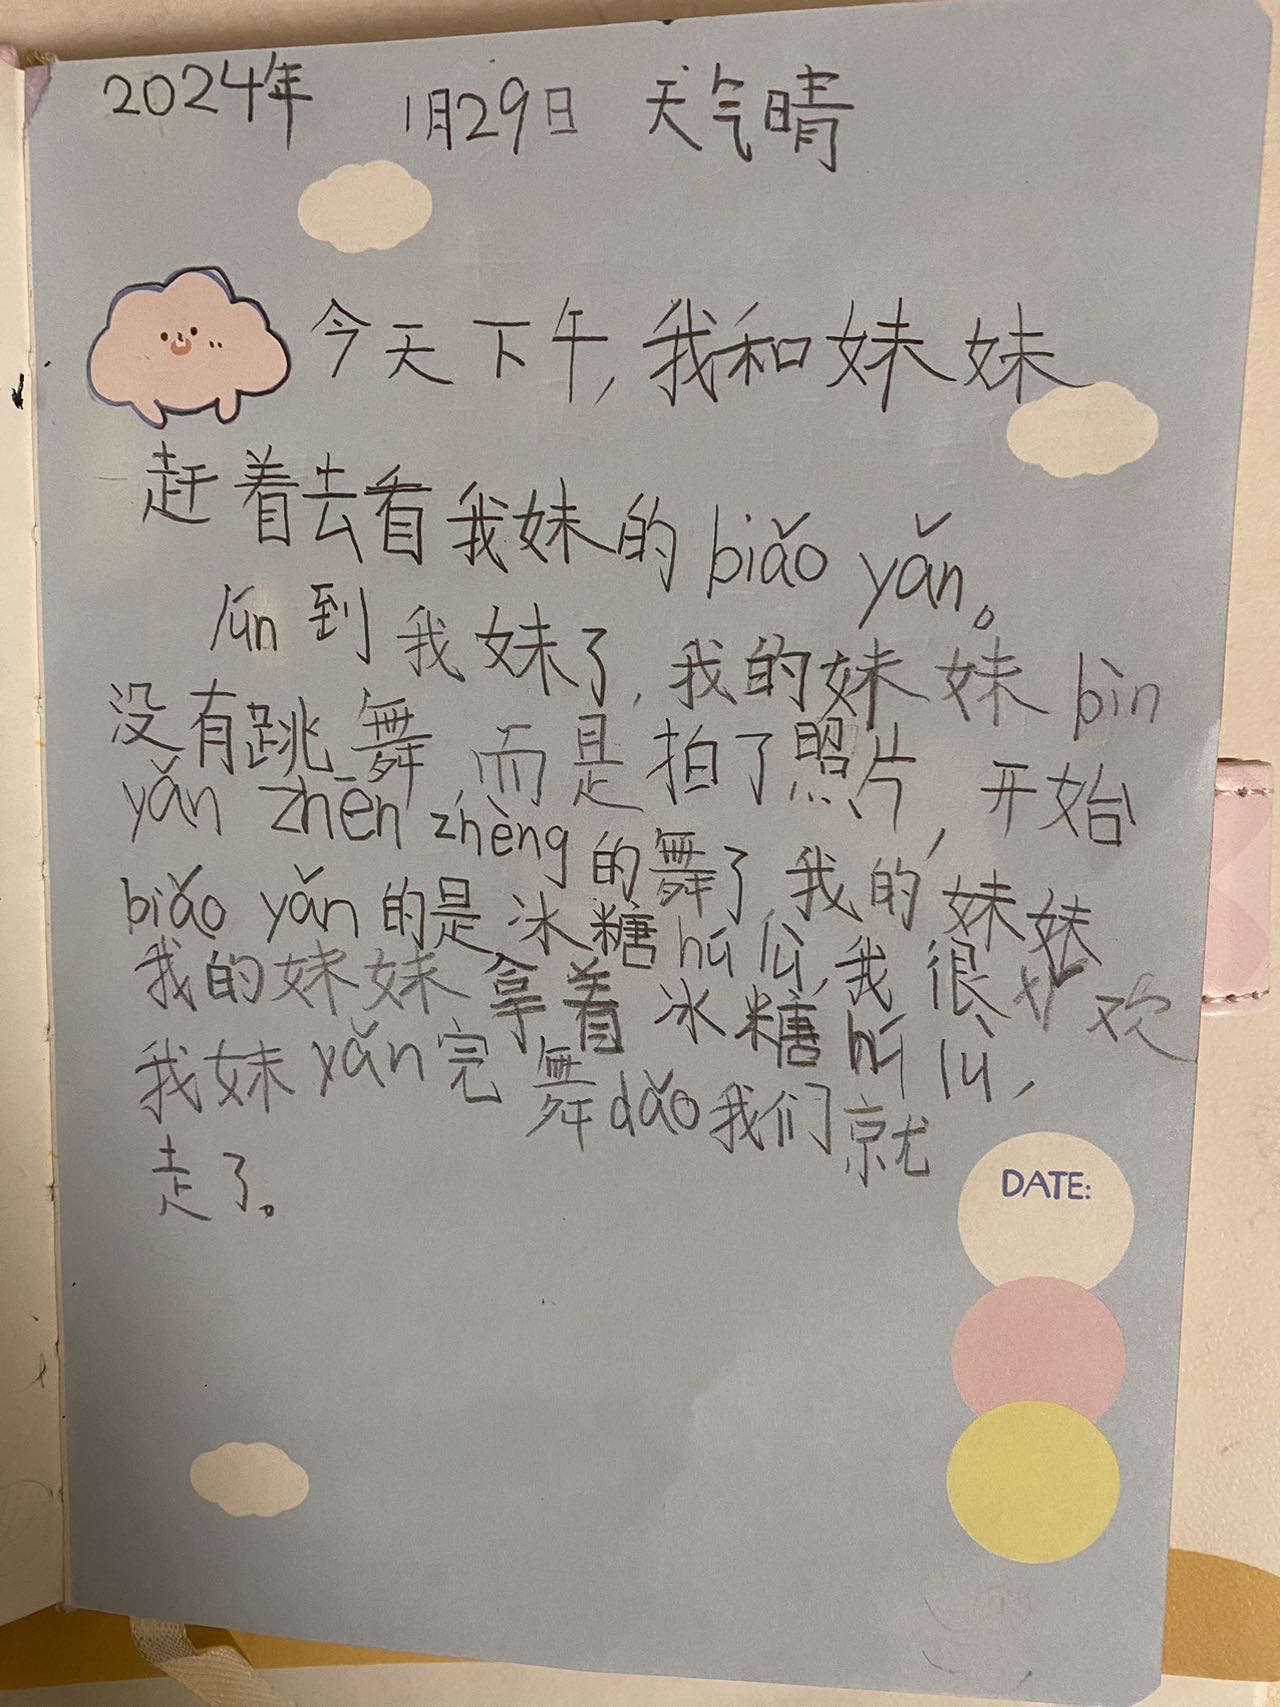 2024年 1月29日 天气晴
今天下午,我和妹妹
赶着去看我妹的biǎo yǎn。
lún到我妹了,我的妹妹bìn
没有跳舞,而是拍了照片,开始
yǎn zhēn zhèng的舞了,我的妹妹
biǎo yǎn的是冰糖hú lu,我很欢
我的妹妹拿着冰糖hú lu,
我妹yǎn完舞dǎo我们就
走了。
DATE: